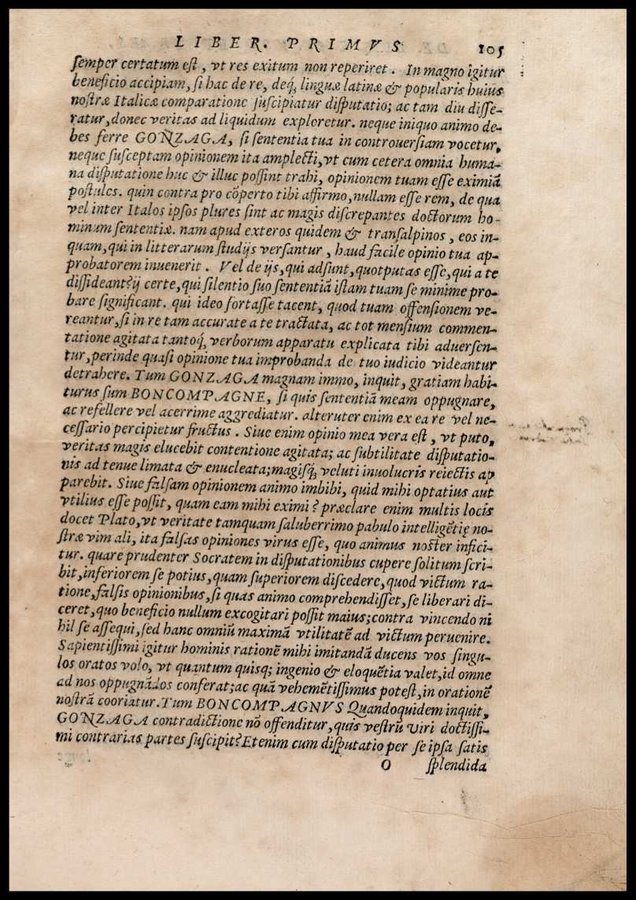 LIBER. PRIMVS 105
semper certatum est, vt res exitum non reperiret. In magno igitur
beneficio accipiam, si hac de re, deq́, linguæ latinæ & popularis huius
nostræ Italicæ comparatione suscipiatur disputatio; ac tam diu disse-
ratur, donec veritas ad liquidum exploretur. neque iniquo animo de-
bes ferre GONZAGA, si sententia tua in controuersiam vocetur,
neque susceptam opinionem ita amplecti, vt cum cetera omnia huma-
na disputatione huc & illuc possint trahi, opinionem tuam esse eximiā
postules. quin contra pro cōperto tibi affirmo, nullam esse rem, de qua
vel inter Italos ipsos plures sint ac magis discrepantes doctorum ho-
minum sententiæ. nam apud exteros quidem & transalpinos, eos in-
quam, qui in litterarum studijs versantur, haud facile opinio tua ap-
probatorem inuenerit. Vel de ijs, qui adsunt, quot putas esse, qui a te
dissideant? ij certe, qui silentio suo sententiā istam tuam se minime pro-
bare significant. qui ideo fortasse tacent, quod tuam offensionem ve-
reantur, si in re tam accurate a te tractata, ac tot mensium commen-
tatione agitata tantoq́, verborum apparatu explicata tibi aduersen-
tur, perinde quasi opinione tua improbanda de tuo iudicio videantur
detrahere. Tum GONZAGA magnam immo, inquit, gratiam habi-
turus sum BONCOMPAGNE, si quis sententiā meam oppugnare,
ac refellere vel acerrime aggrediatur. alteruter enim ex ea re vel ne-
cessario percipietur fructus. Siue enim opinio mea vera est, vt puto,
veritas magis elucebit contentione agitata; ac subtilitate disputatio-
nis ad tenue limata & enucleata; magisq́, veluti inuolucris reiectis ap
parebit. Siue falsam opinionem animo imbibi, quid mihi optatius aut
vtilius esse possit, quam eam mihi eximi? præclare enim multis locis
docet Plato, vt veritate tamquam saluberrimo pabulo intelligētię no-
stræ vim ali, ita falsas opiniones virus esse, quo animus noster infici-
tur. quare prudenter Socratem in disputationibus cupere solitum scri-
bit, inferiorem se potius, quam superiorem discedere, quod victum ra-
tione, falsis opinionibus, si quas animo comprehendisset, se liberari di-
ceret, quo beneficio nullum excogitari possit maius; contra vincendo ni
hil se assequi, sed hanc omniū maximā vtilitatē ad victum peruenire.
Sapientissimi igitur hominis rationē mihi imitandā ducens vos singu-
los oratos volo, vt quantum quisq; ingenio & eloquētia valet, id omne
ad nos oppugnādos conferat; ac quā vehemētissimus potest, in orationē
nostrā cooriatur. Tum BONCOMPAGNVS Quandoquidem inquit,
GONZAGA contradictione nō offenditur, quis vestrū viri doctissi-
mi contrarias partes suscipit? Etenim cum disputatio per se ipsa satis
O splendida